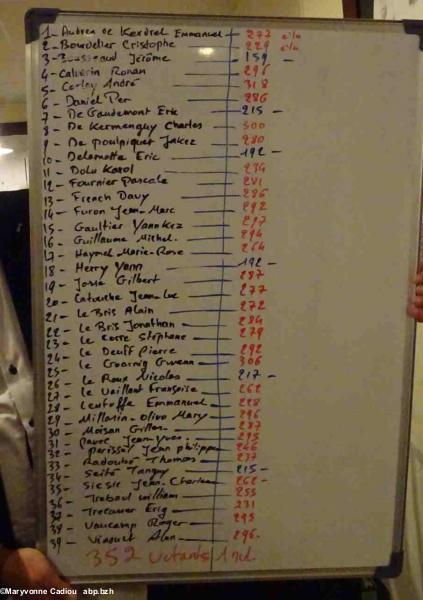 1- Aubren de Kerdrel Emmanuel - 277 élu
2- Bourdelier Cristophe 229 élu
3- Jérôme 159 -
4- Calvarin Ronan 296
5- Corlay André 318
6- Daniel Per 286
7- De Gaudemont Eric 215 -
8- De Kermenguy Charles 300
9- De poulpiquet Jakez 280
10- Delamotte Eric 192 -
11- Dolu Karol 234
12- Fournier Pascale 281
13- French Davy 286
14- Furon Jean-Marc 292
15- Gaultier Yann Kez 297
16- Guillaume Michel. 294
17- Haymel Marie-Rose 264
18- Herry Yann 192 -
19- Josse Gilbert 287
20- Latouche Jean-Luc 277
21- Le Bris Alain 272
22- Le Bris Jonathan 284
23- Le corre Stéphane 279
24- Le Deuff Pierre 292
25- Le Gwenn 306
26- Le Roux Nicolas 217 -
27- Le Vaillant Françoise 262
28- Emmanuel 228
29- Millarin-Olivo Mary 296
30- Moisan Gilles. 287
31- Jean-Yves. 295
32- perisset Jean philippe 246
33- Radoubé Thomas 237
34- Saité Tanguy 215 -
35- Siesie Jean-Charles 262 -
36- Trebaul william 255
37- Erig 231
38- Vaucamp Roger 295
39- Alan 296.
352 votants
©Maryvonne Cadiou abp.bzh